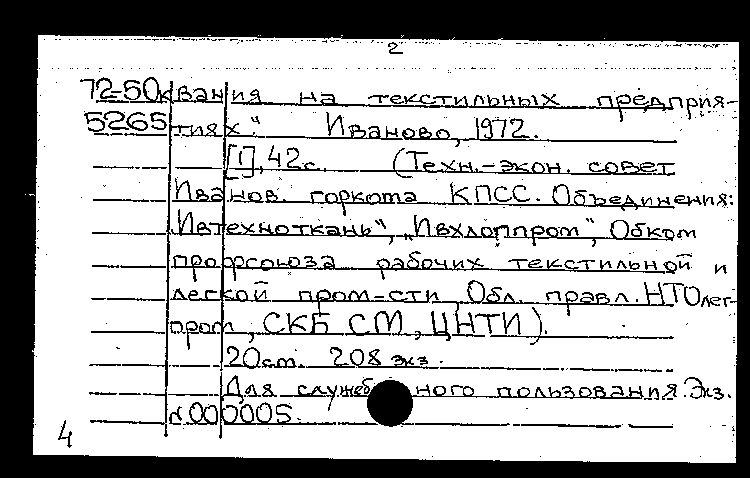 2
72-50к вания на текстильных предприя-
5265 тиях". Иваново, 1972.
[1], 42с. (Техн.-экон. совет
Иванов. горкома КПСС. Объединения:
"Ивтехноткань", "Ивхлоппром", Обком
профсоюза рабочих текстильной и
легкой пром-сти, Обл. правл. НТОлег-
пром, СКБ СМ, ЦНТИ).
20см. 208 экз.
Для служебного пользования. Экз.
№000005.
4